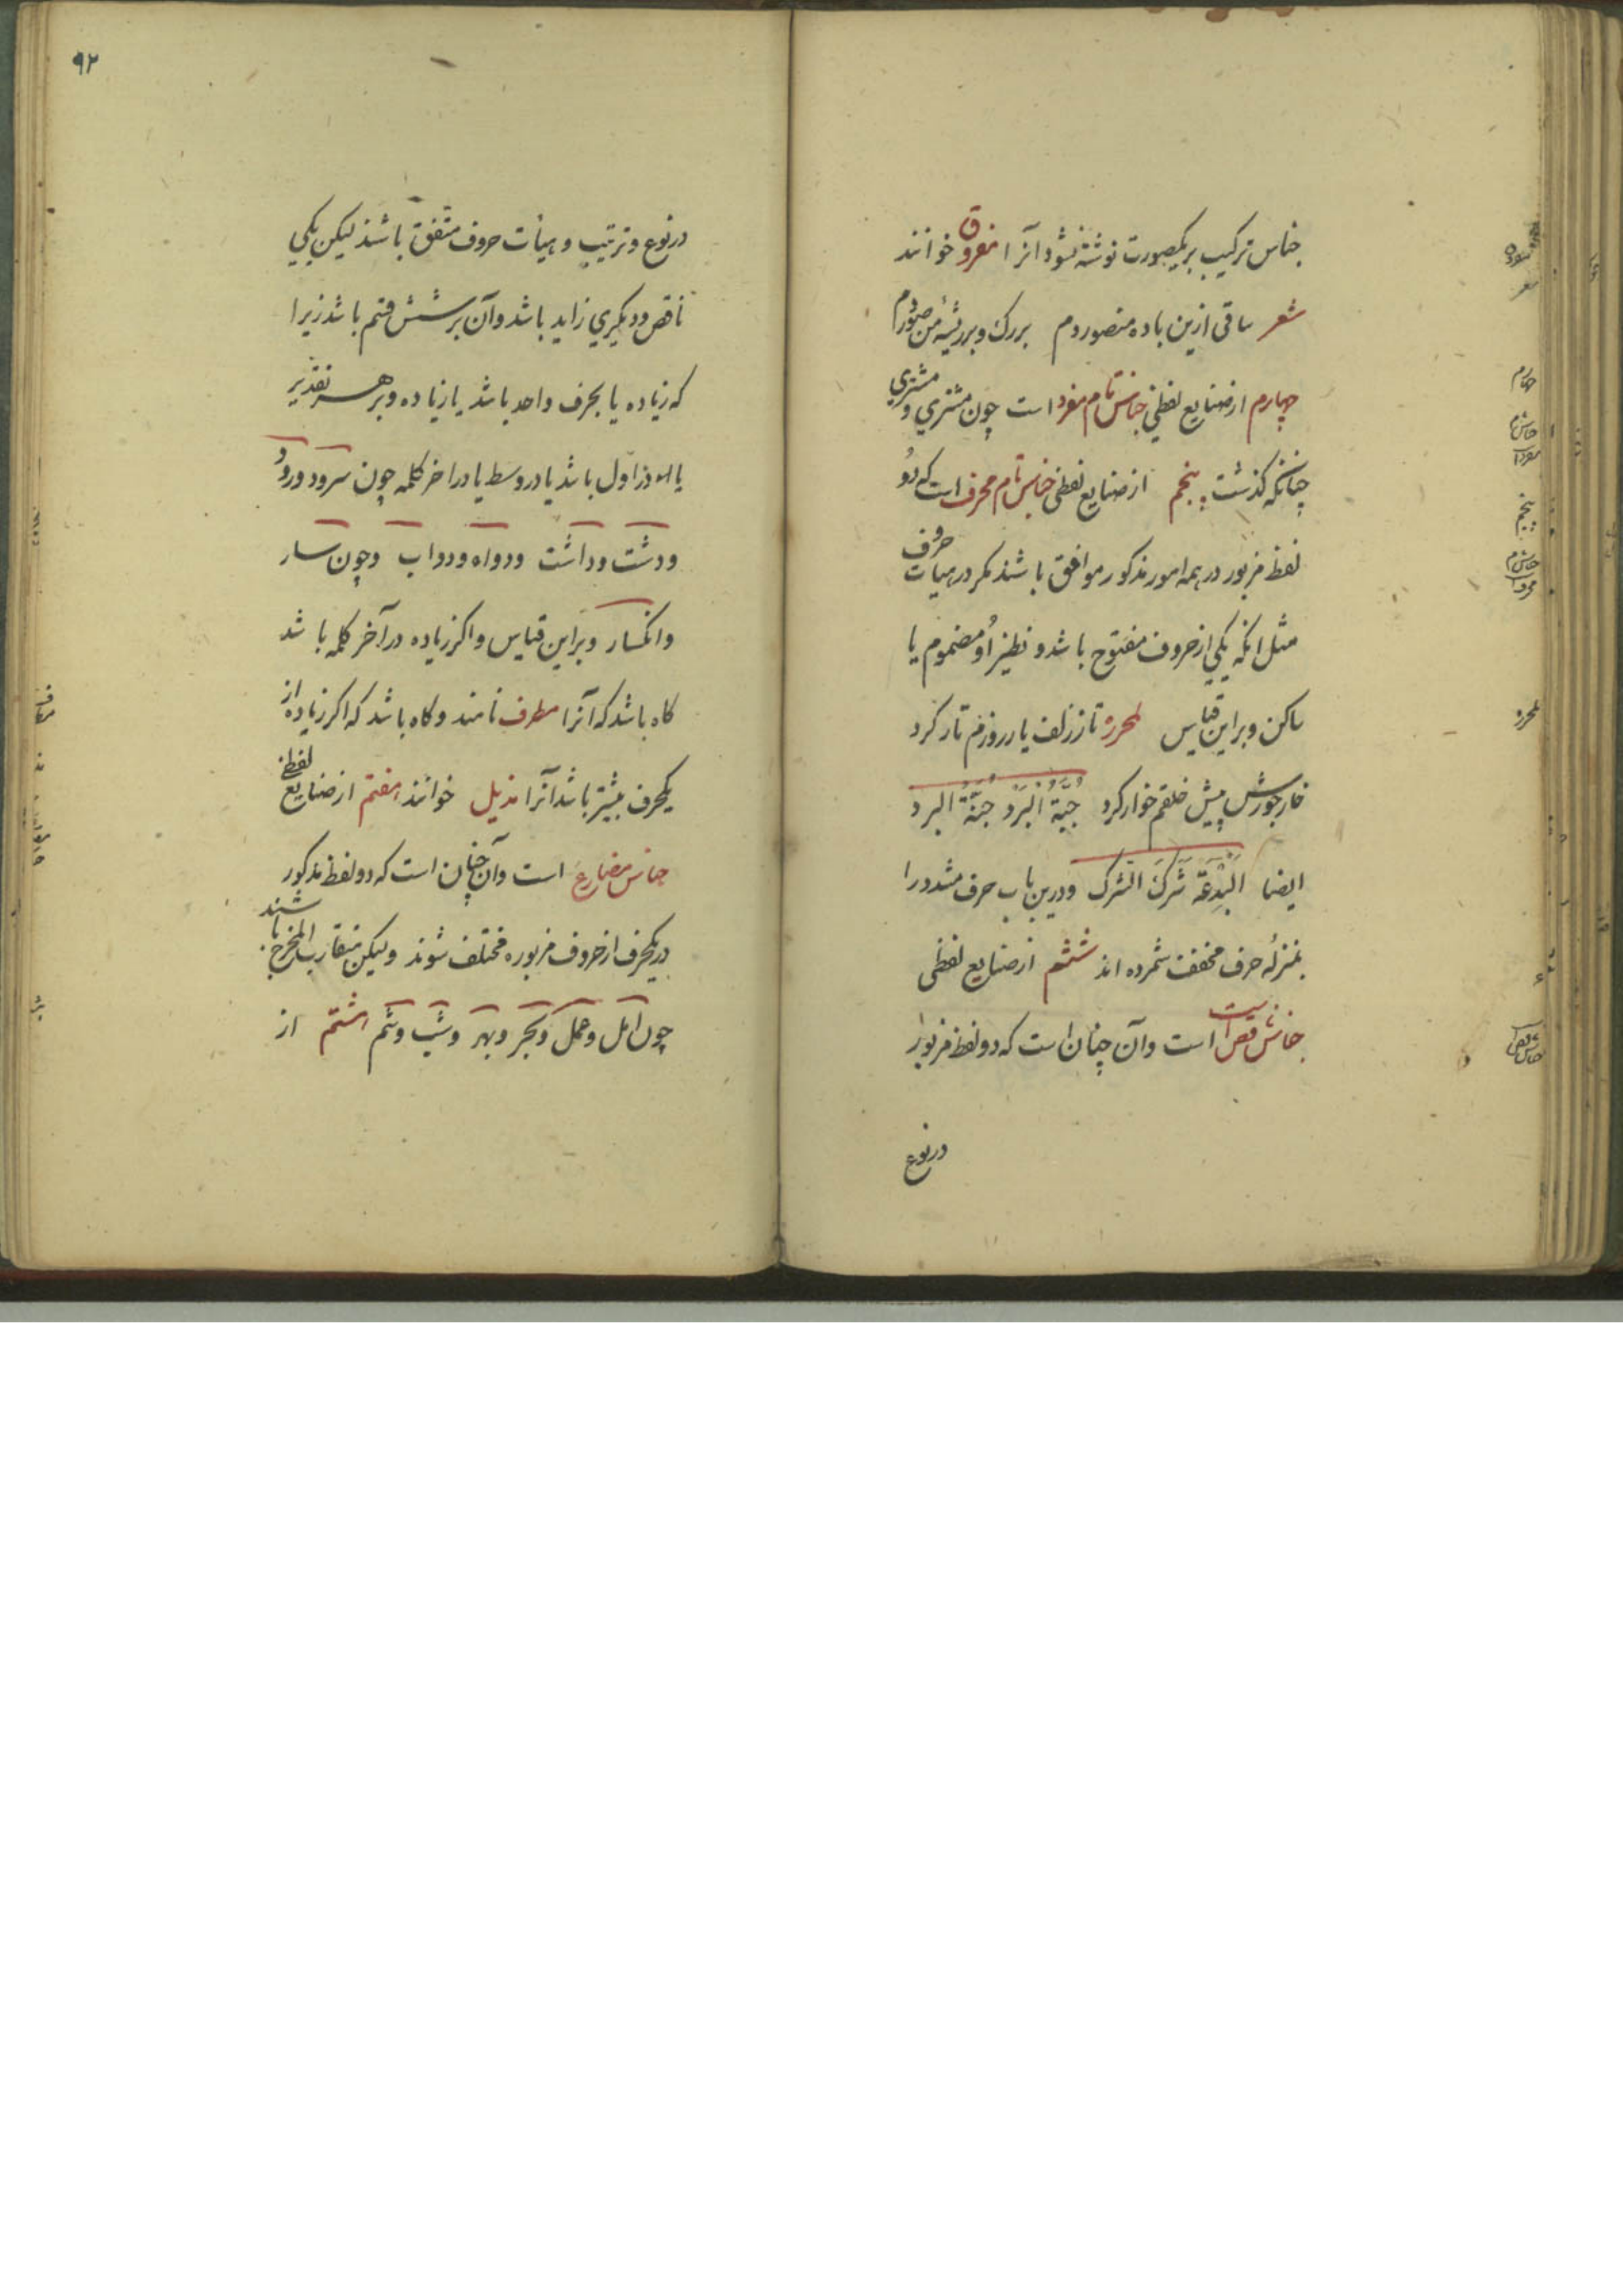 جناس ترکیب بریکصورت نوشته نشود آنرا مفروق خوانند
شعر ساقی ازین باده منصور دم بررگ و برریشه من صور دم
چهارم از صنایع لفظی جناس تام مفرد است چون مشتری و مشتری
چنانکه گذشت پنجم از صنایع لفظی جناس تام محرف است که دو
لفظ مزبور در همه امور مذکور موافق باشند مکر در هیات حروف
مثل انکه یکی از حروف مفتوح باشد و نظیر او مضموم یا
ساکن و براین قیاس لمحرره تا ز زلف یار روزم تار کرد
خار جورش پیش خلقم خوار کرد جُبَّةُ الْبُرْد جُنَّةُ البرد
ایضا اَلْبِدْعَة شَرَكُ الشرك و درین باب حرف مشدد را
بمنزلهٔ حرف مخفف شمرده اند ششم از صنایع لفظی
جناس ناقص است وآن چنان است که دو لفظ مزبور
در نوع
چهارم
پنجم
۹۲
در نوع و ترتیب و هیأت حروف متفق باشند لیکن یکی
ناقص و دیکری زاید باشد وآن بر شش قسم باشد زیرا
که زیاده یا بحرف واحد باشد یا زیاده و بر هر تقدیر
یا در اول باشد یا در وسط یا در اخر کلمه چون سرود و رود
و دشت و داشت و دواه و دواب و چون سار
وانکسار و براین قیاس و اکر زیاده در آخر کلمه باشد
کاه باشد که آنرا مطرف نامند و کاه باشد که اکر زیاده از
یکحرف بیشتر باشد آنرا مذیل خوانند هفتم از صنایع لفظی
جناس مضارع است وآن چنان است که دو لفظ مذکور
در یکحرف از حروف مزبوره مختلف شوند ولیکن متقارب المخرج باشند
چون امل و عمل و بحر و بهر و شب و شم هشتم از